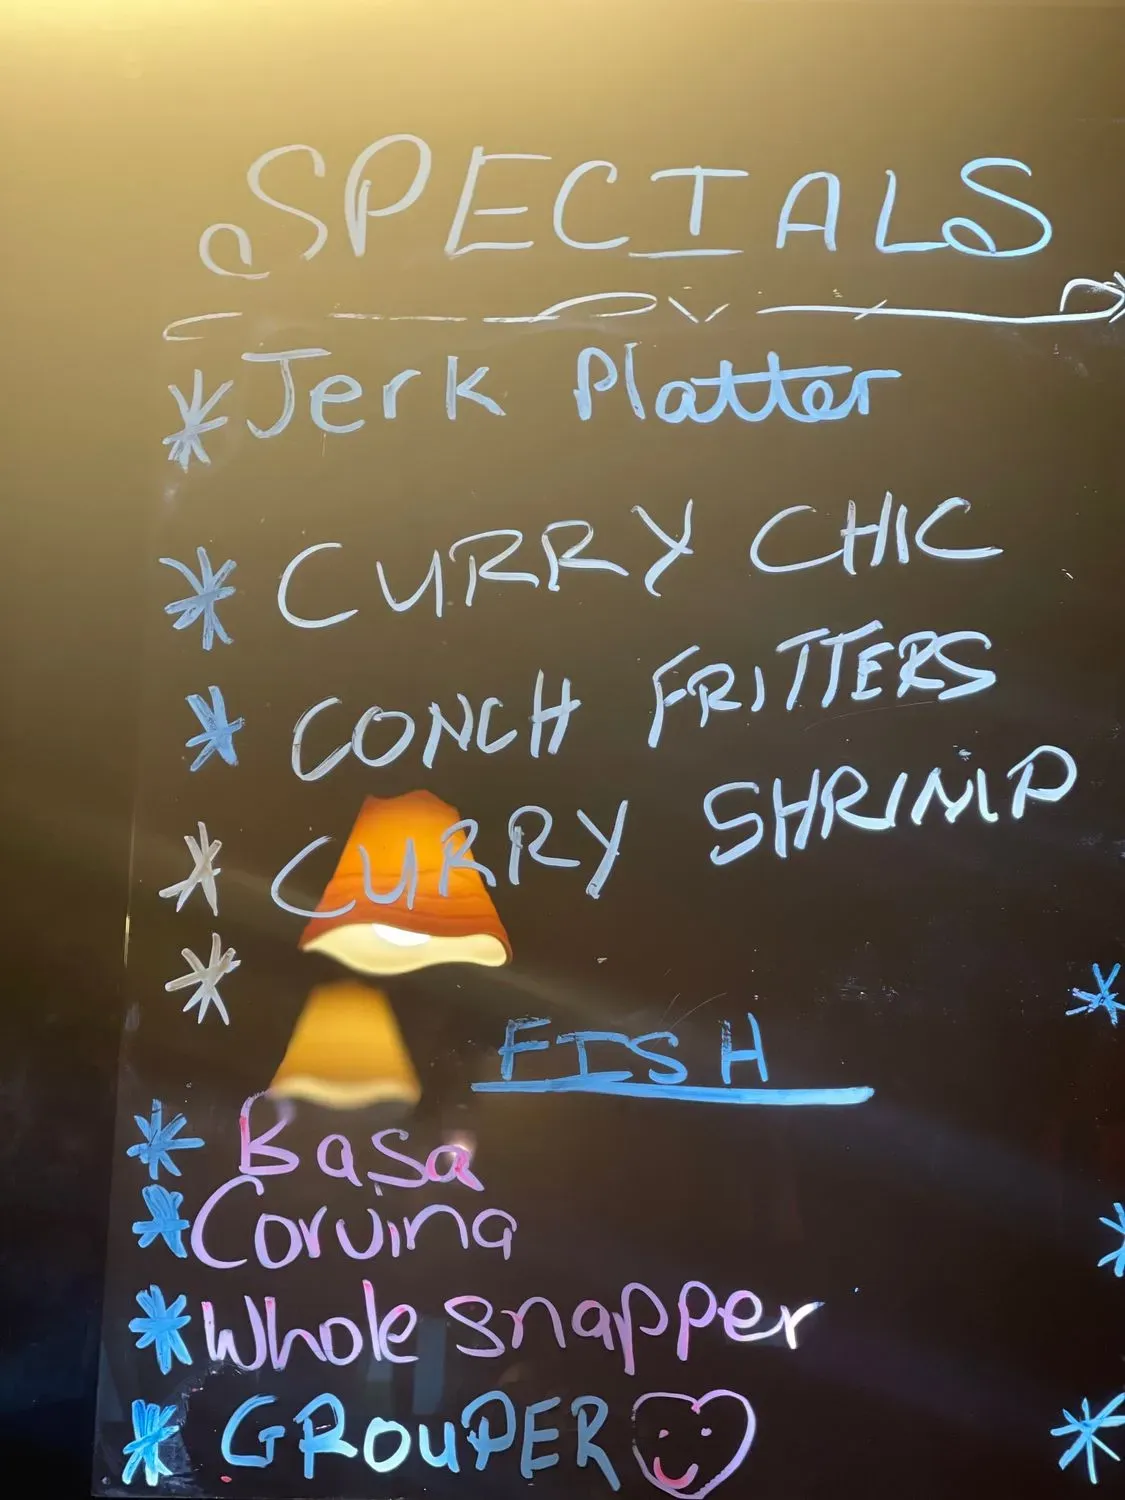 SPECIALS
* Jerk Platter
* CURRY CHIC
* CONCH FRITTERS
* CURRY SHRIMP
*
FISH
* Basa
* Corvina
* Whole snapper
* GROUPER